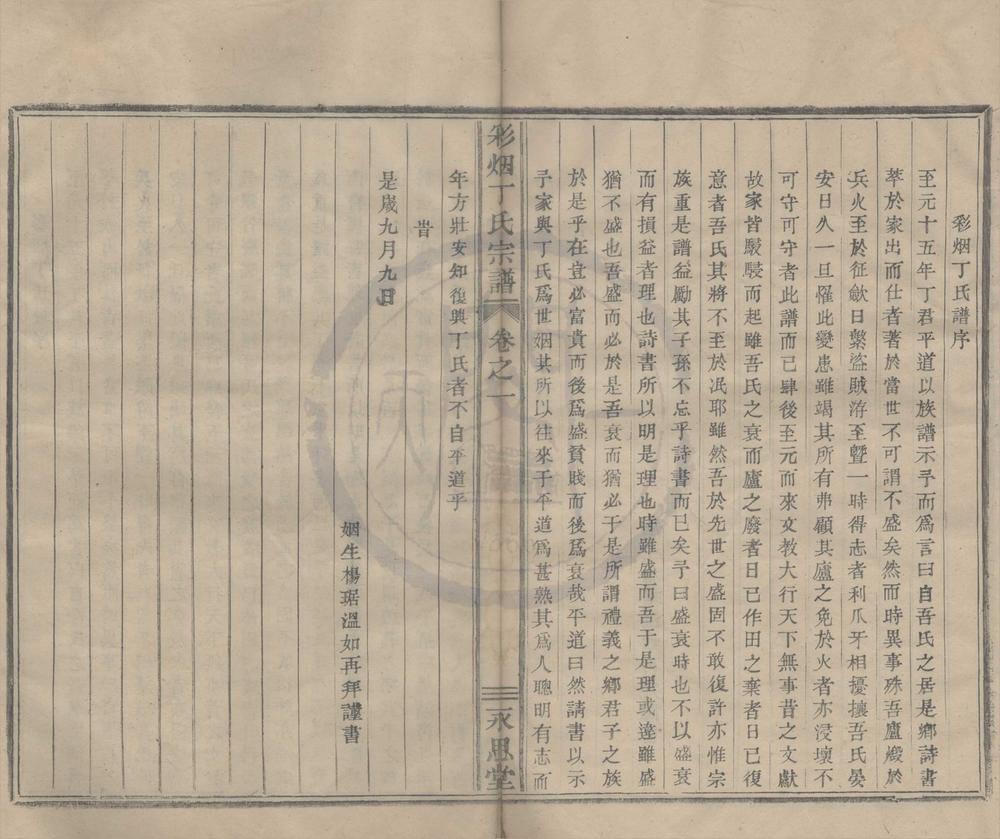 彩烟丁氏譜序
至元十五年丁君平道以族譜示予而爲言曰自吾氏之居是鄉詩書
萃於家出而仕者著於當世不可謂不盛矣然而時異事殊吾廬燬於
兵火至於征歛日繁盜賊洊至曁一時得志者利爪牙相擾攘吾氏晏
安日久一旦罹此變患雖竭其所有弗顧其廬之免於火者亦浸壞不
可守可守者此譜而已肆後至元而來文教大行天下無事昔之文獻
故家皆駸駸而起雖吾氏之衰而廬之廢者日已作田之棄者日已復
意者吾氏其將不至於泯耶雖然吾於先世之盛固不敢復許亦惟宗
族重是譜益勵其子孫不忘乎詩書而已矣予曰盛衰時也不以盛衰
而有損益者理也詩書所以明是理也時雖盛而吾于是理或違雖盛
猶不盛也吾盛而必於是吾衰而猶必于是所謂禮義之鄉君子之族
於是乎在豈必富貴而後爲盛貧賤而後爲衰哉平道曰然請書以示
予家與丁氏爲世姻其所以往來于平道爲甚熟其爲人聰明有志而
彩烟丁氏宗譜 卷之一 永思堂
年方壯安知復興丁氏者不自平道乎
旹
是歲九月九日
姻生楊琚溫如再拜謹書